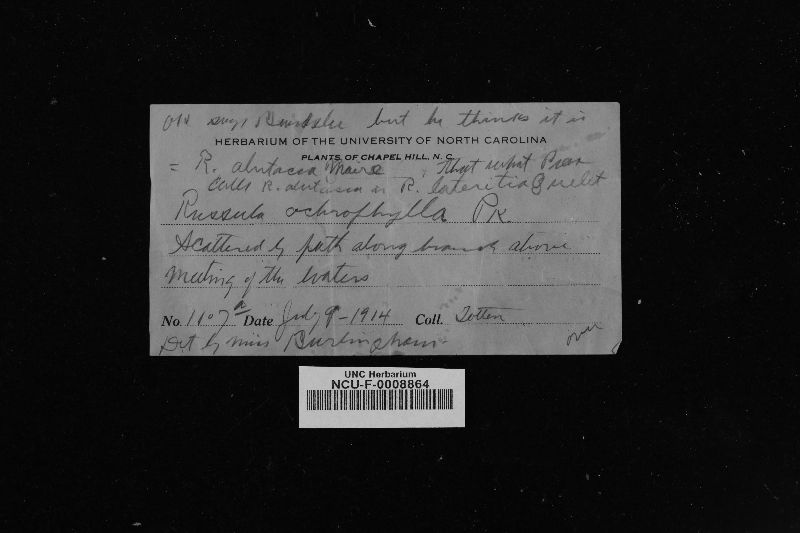 OK says Beardslee but he thinks it is
HERBARIUM OF THE UNIVERSITY OF NORTH CAROLINA
PLANTS OF CHAPEL HILL, N. C.
= R. alutacea Maire. That what Peck
calls R. alutacea is R. lateritia Quelet
Russula ochrophylla Pk
Scattered by path along branch above
Meeting of the Waters
No. 1107a Date July 9 - 1914 Coll. Totten
Det by Miss Burlingham
over
UNC Herbarium
NCU-F-0008864